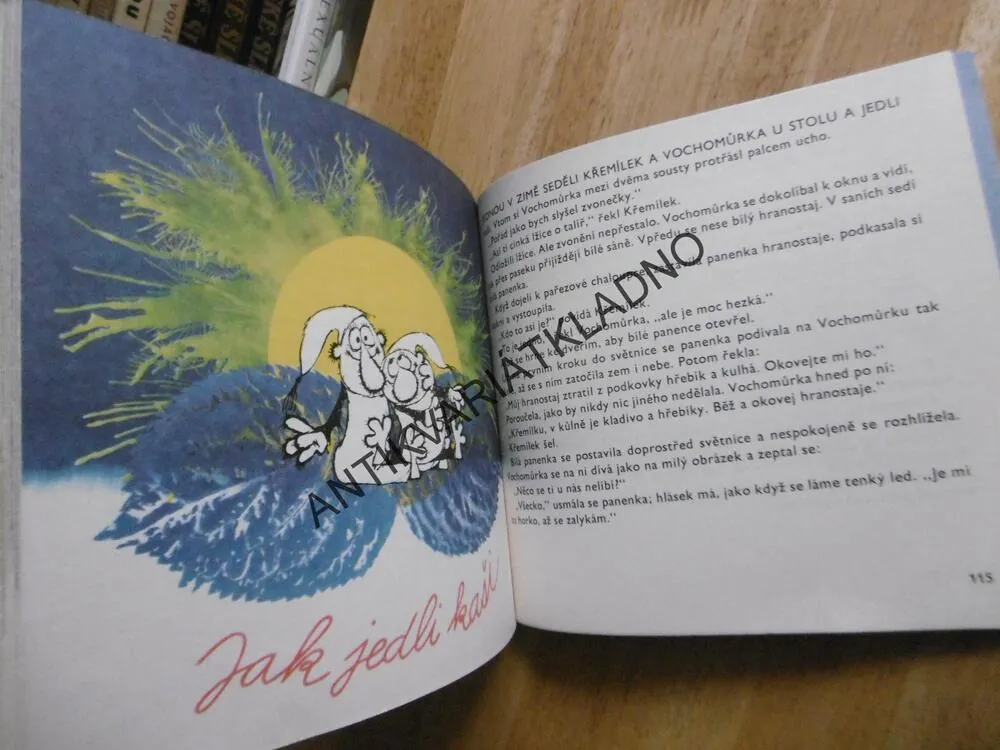 Jak jedli kaši
JEDNOU V ZIMĚ SEDĚLI KŘEMÍLEK A VOCHOMŮRKA U STOLU A JEDLI
Vtom si Vochomůrka mezi dvěma sousty protřásl palcem ucho.
„Pořád jako bych slyšel zvonečky.“
„Asi ti cinká lžíce o talíř,“ řekl Křemílek.
Odložili lžíce. Ale zvonění nepřestalo. Vochomůrka se dokolíbal k oknu a vidí,
přes paseku přijíždějí bílé sáně. Vpředu se nese bílý hranostaj. V saních sedí
panenka.
Když dojeli k pařezové chaloupce, panenka hranostaje, podkasala si
a vystoupila.
„Kdo to asi je?“ Křemílek.
„To je jedno,“ řekl Vochomůrka, „ale je moc hezká.“
se hrne ke dveřím, aby bílé panence otevřel.
prvním kroku do světnice se panenka podívala na Vochomůrku tak
až se s ním zatočila zem i nebe. Potom řekla:
„Můj hranostaj ztratil z podkovky hřebík a kulhá. Okovejte mi ho.“
Poroučela, jako by nikdy nic jiného nedělala. Vochomůrka hned po ní:
„Křemílku, v kůlně je kladivo a hřebíky. Běž a okovej hranostaje.“
Křemílek šel.
Bílá panenka se postavila doprostřed světnice a nespokojeně se rozhlížela.
Vochomůrka se na ni dívá jako na milý obrázek a zeptal se:
„Něco se ti u nás nelíbí?“
„Všecko,“ usmála se panenka; hlásek má, jako když se láme tenký led. „Je mi
horko, až se zalykám.“
115
ANTIKVARIÁTKLADNO